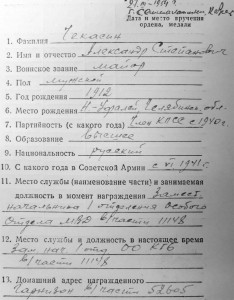 г. Семипалатинск
Дата и место вручения
ордена, медали
1. Фамилия Чекасин
2. Имя и отчество Александр Степанович
3. Воинское звание майор
4. Пол мужской
5. Год рождения 1912
6. Место рождения Челябинск обл.
7. Партийность (с какого года) Член КПСС с 1940 г.
8. Образование высшее
9. Национальность русский
10. С какого года в Советской Армии с VI. 1941 г.
11. Место службы (наименование части) и занимаемая
должность в момент награждения Замест.
начальника 1 отделения Особого
Отдела МВД в/части 11148
12. Место службы и должность в настоящее время
Зам. нач. 1 отд ОО КГБ
в/части 11148
13. Домашний адрес награжденного
Гарнизон в/части 52605